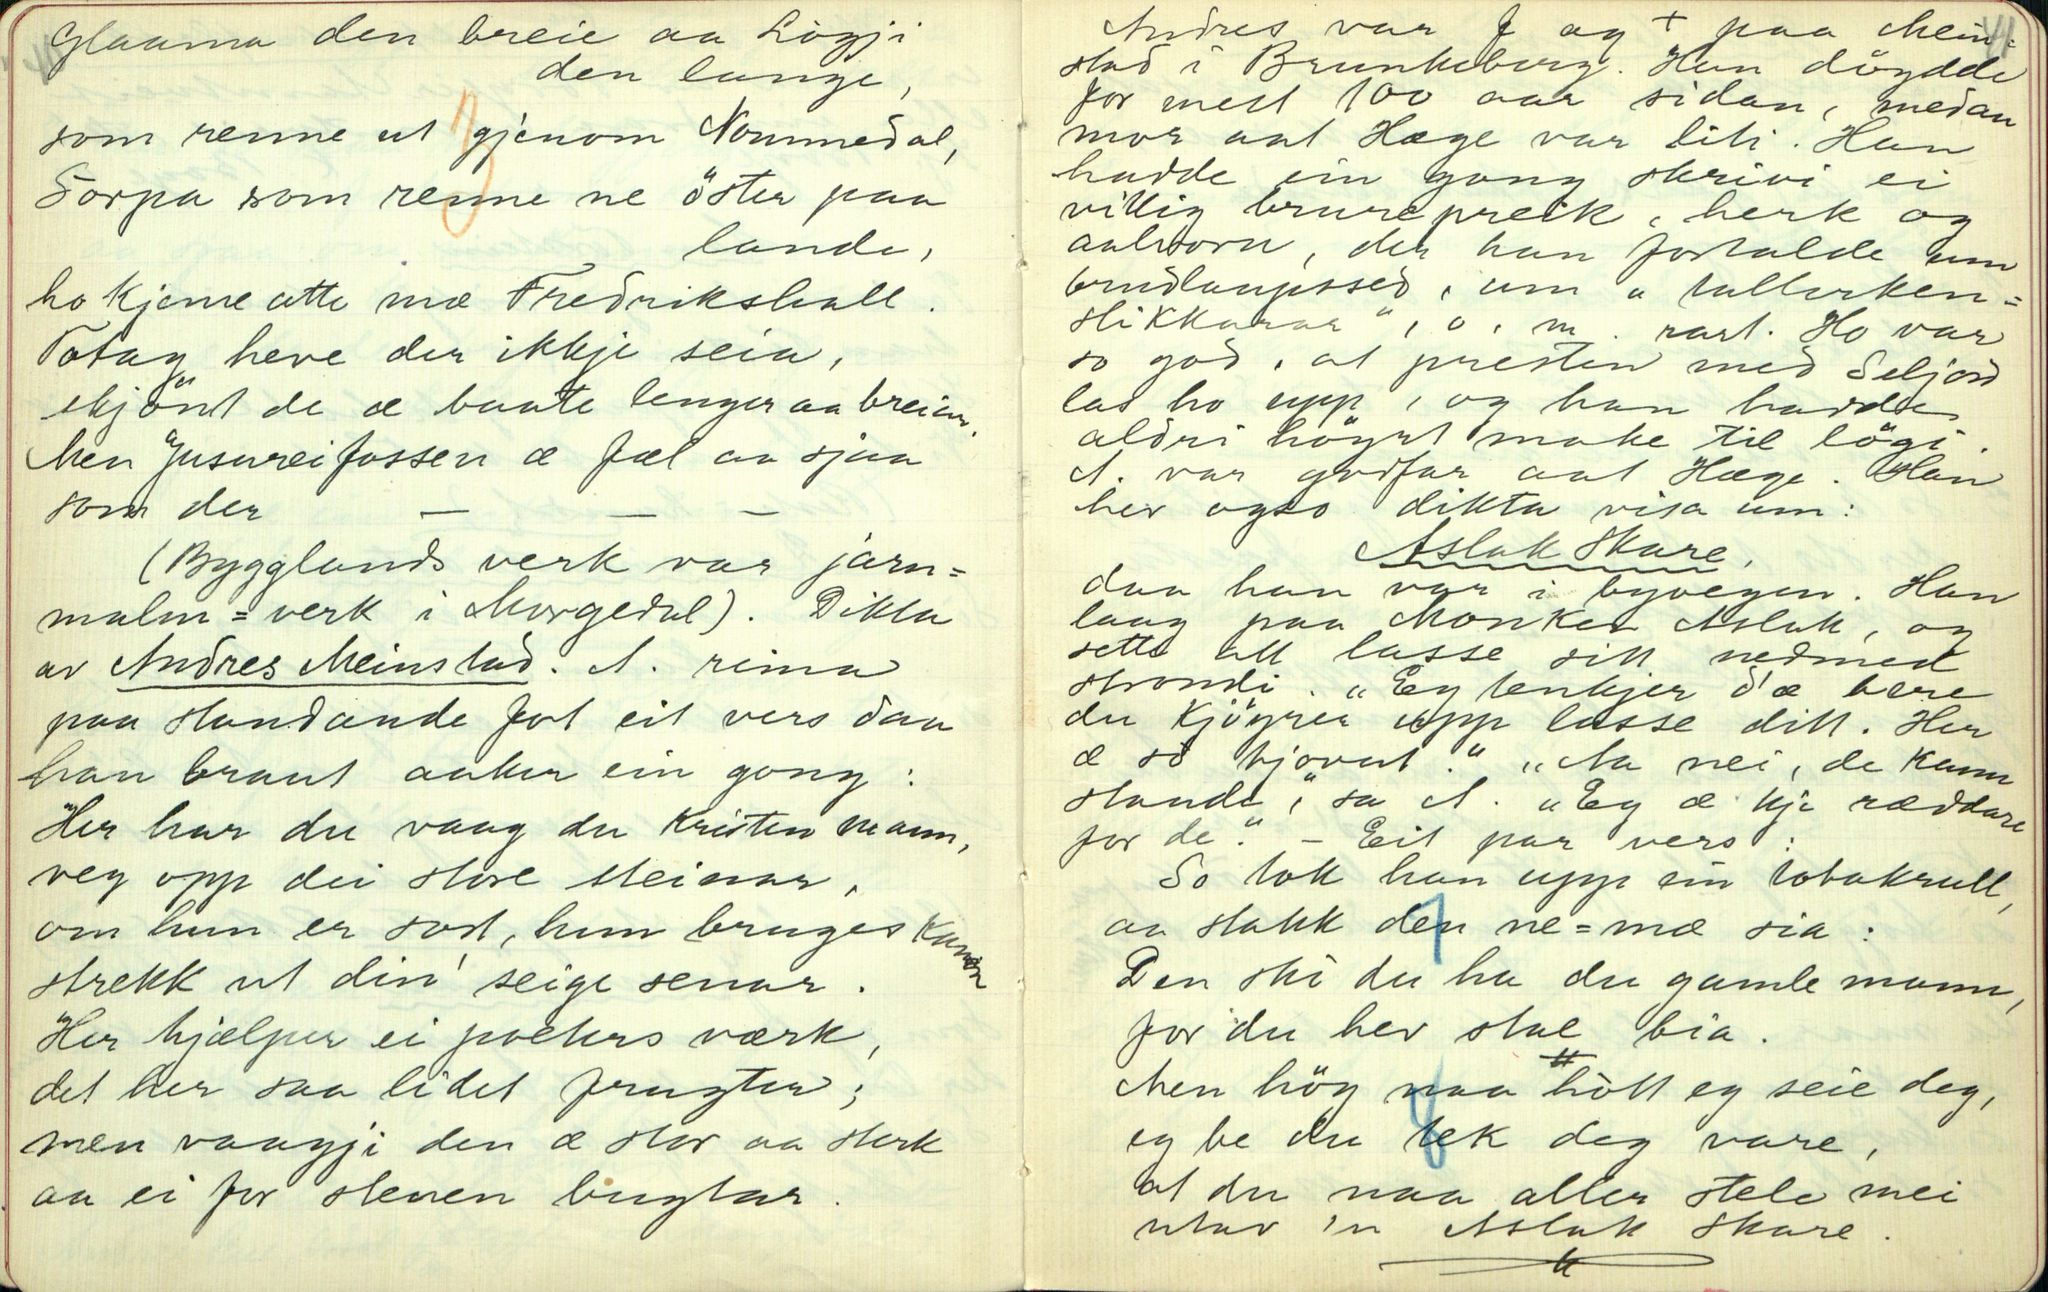 Glaama den breie aa Lögji
den lange,
som renne ut gjenom Nommedal,
Torpa som renne ne öster paa
lande,
ho kjeme atte mæ Fredrikshall.
Totag heve der ikkje seia,
skjönt de æ baate lenger aa breiar.
Men Jusureifossen æ fæl aa sjaa
som der — — —
(Bygglands verk var jarn=
malm=verk i Morgedal). Dikta
av Andres Meinstad. A. rima
paa standande fot eit vers daa
han braut aaker ein gong:
Her har du vaag du kristen mann,
veg opp dei store steinar,
om hun er sort, hun bruges kann
strekk ut din' seige senar.
Her hjælper ei poeters værk,
det her saa lidet frugter;
men vaagji den æ stor aa sterk
aa ei for stenen bugtar.
Andres var f og + paa Mein=
stad i Brunkeberg. Han döydde
for mest 100 aar sidan, medan
mor aat Hæge var liti. Han
hadde ein gong skrivi ei
villig brurepreik, herk og
aalvorn, der han fortalde um
brudlaupssed, um "tallerken=
slikkarar", o. m. rart. Ho var
so god, at presten med Seljord
las ho upp, og han hadde
aldri höyrt make til lögi.
A. var godfar aat Hæge. Han
hev ogso dikta visa um:
Aslak Skare,
daa han var i byvegen. Han
laag paa Monken Aslak, og
sette att lasse sitt nedmed
strondi. "Eg tenkjer d'æ bære
du kjöyrer upp lasse ditt. Her
æ so tjovut." "Aa nei, de kann
stande," sa A. "Eg æ kje ræddare
for de." – Eit par vers:
So tok han upp ein tobakrull,
aa stakk den ne=mæ sia:
Den ski du ha du gamle mann,
for du hev stae bia.
Men höy naa hott eg seie deg,
eg be du tek deg vare,
at du naa aller stele mei
utav 'n Aslak Skare.